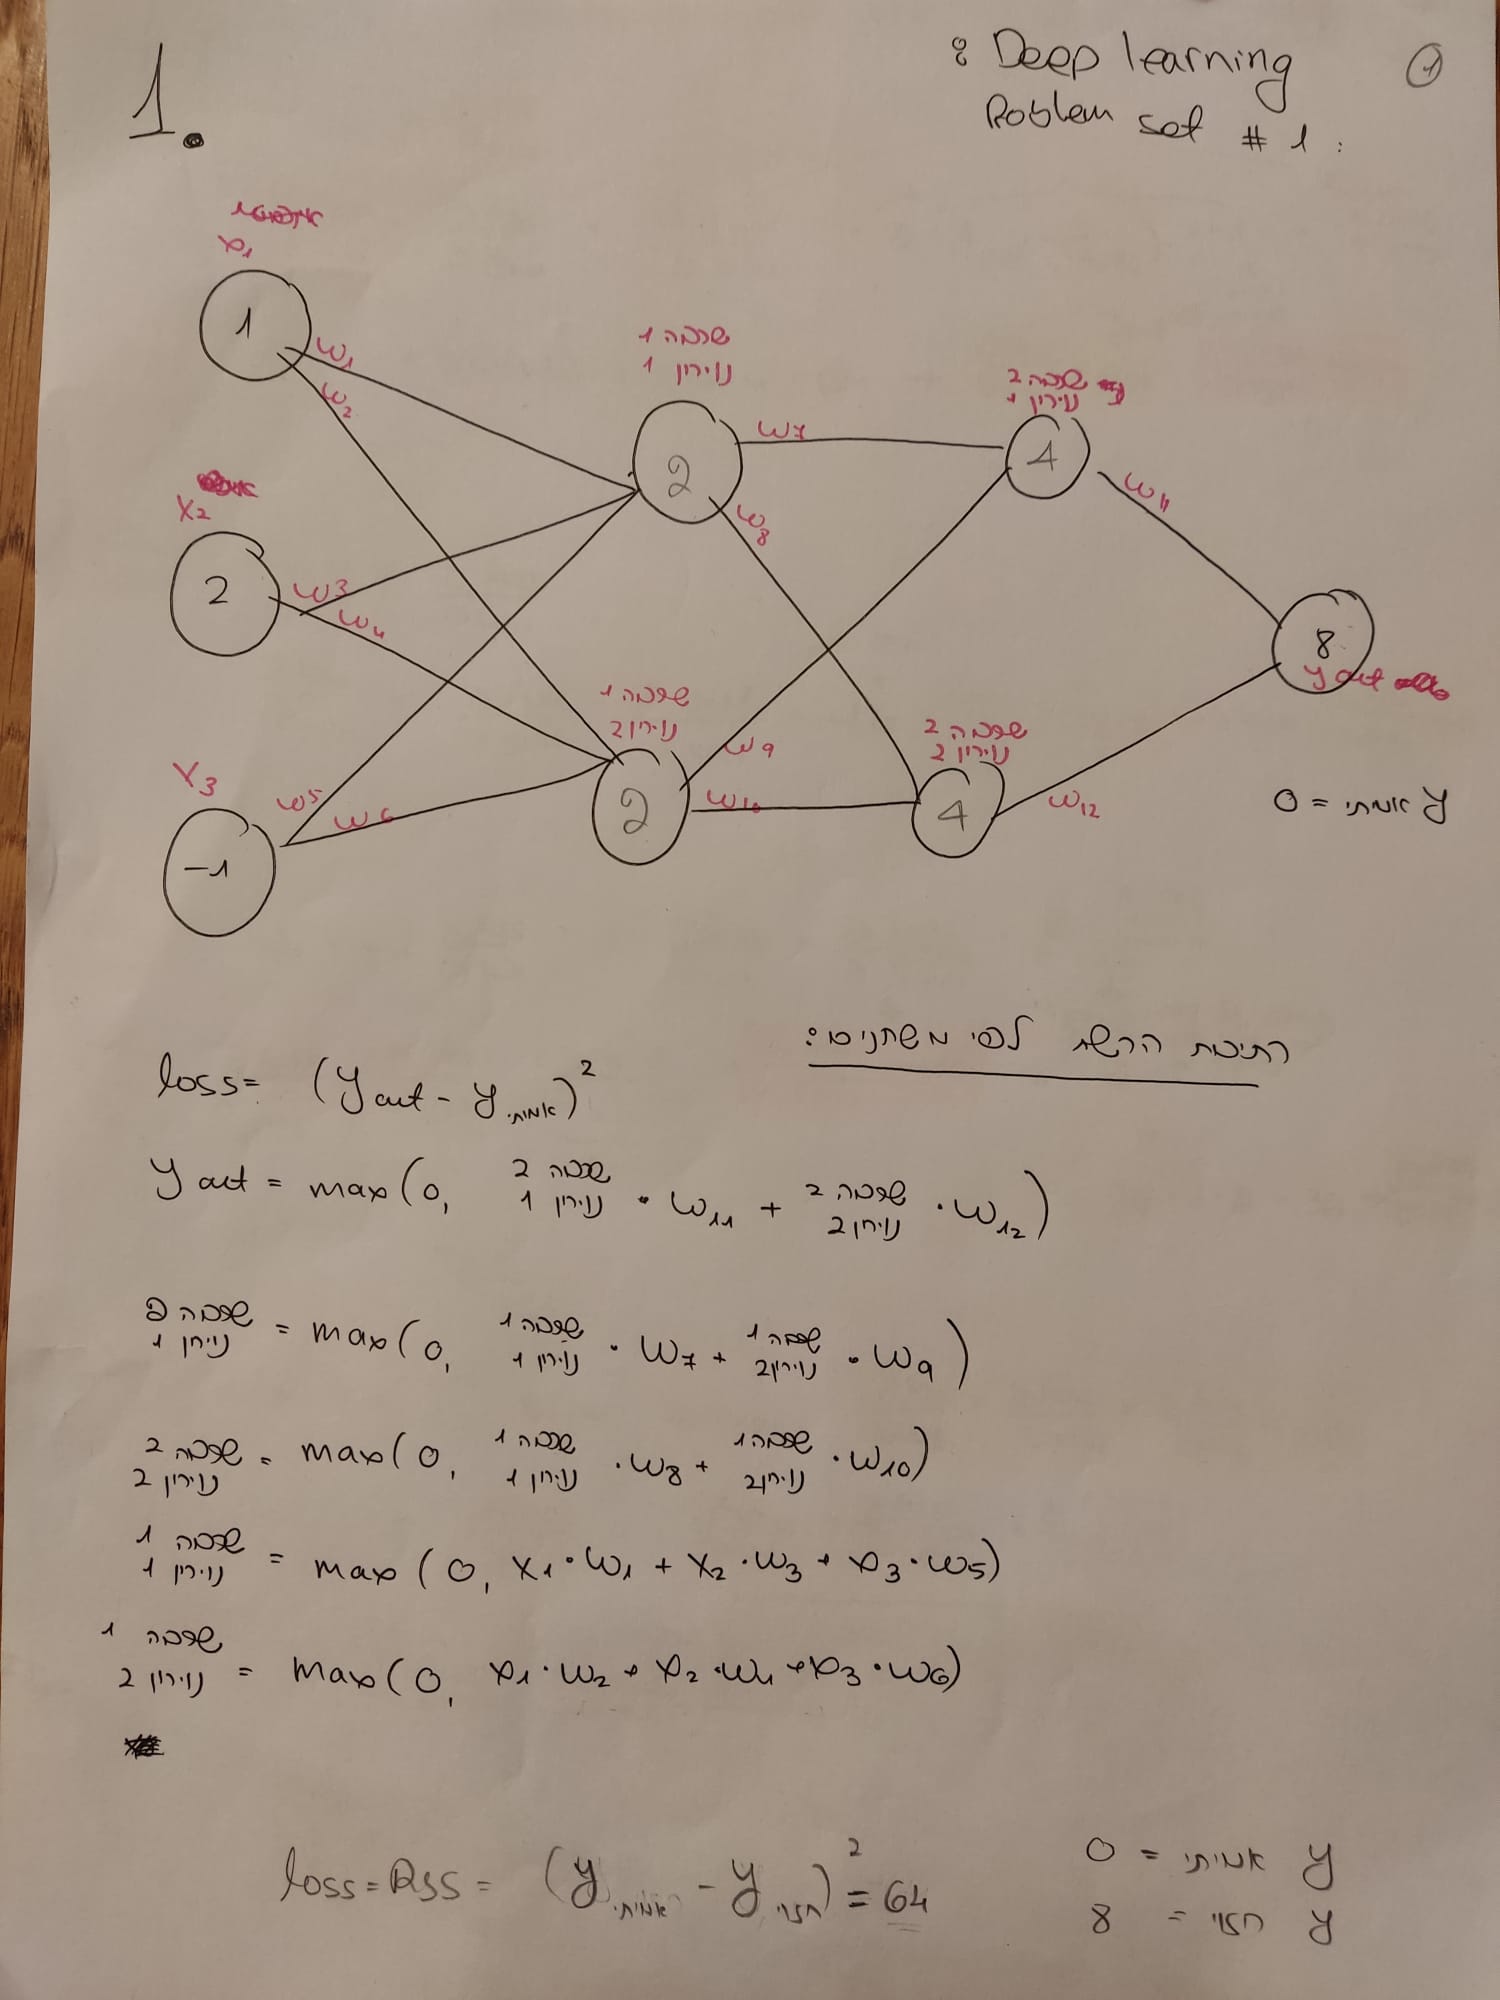 1.
: Deep learning
Problem set # 1 :
1
x1
1
w1
w2
שכבה 1
נוירון 1
2
w7
w8
שכבה 2
נוירון 1
4
w11
x2
2
w3
w4
8
y out
שכבה 1
נוירון 2
2
w9
w10
שכבה 2
נוירון 2
4
w12
y אמיתי = 0
x3
-1
w5
w6
רתיכת הרשת לפי משתנים:
loss = (y out - y אמיתי)²
y out = max(0, שכבה 2 נוירון 1 · w11 + שכבה 2 נוירון 2 · w12)
שכבה 2 נוירון 1 = max(0, שכבה 1 נוירון 1 · w7 + שכבה 1 נוירון 2 · w9)
שכבה 2 נוירון 2 = max(0, שכבה 1 נוירון 1 · w8 + שכבה 1 נוירון 2 · w10)
שכבה 1 נוירון 1 = max(0, x1 · w1 + x2 · w3 + x3 · w5)
שכבה 1 נוירון 2 = max(0, x1 · w2 + x2 · w4 + x3 · w6)
loss = RSS = (y אמיתי - y חזוי)² = 64
y אמיתי = 0
y חזוי = 8